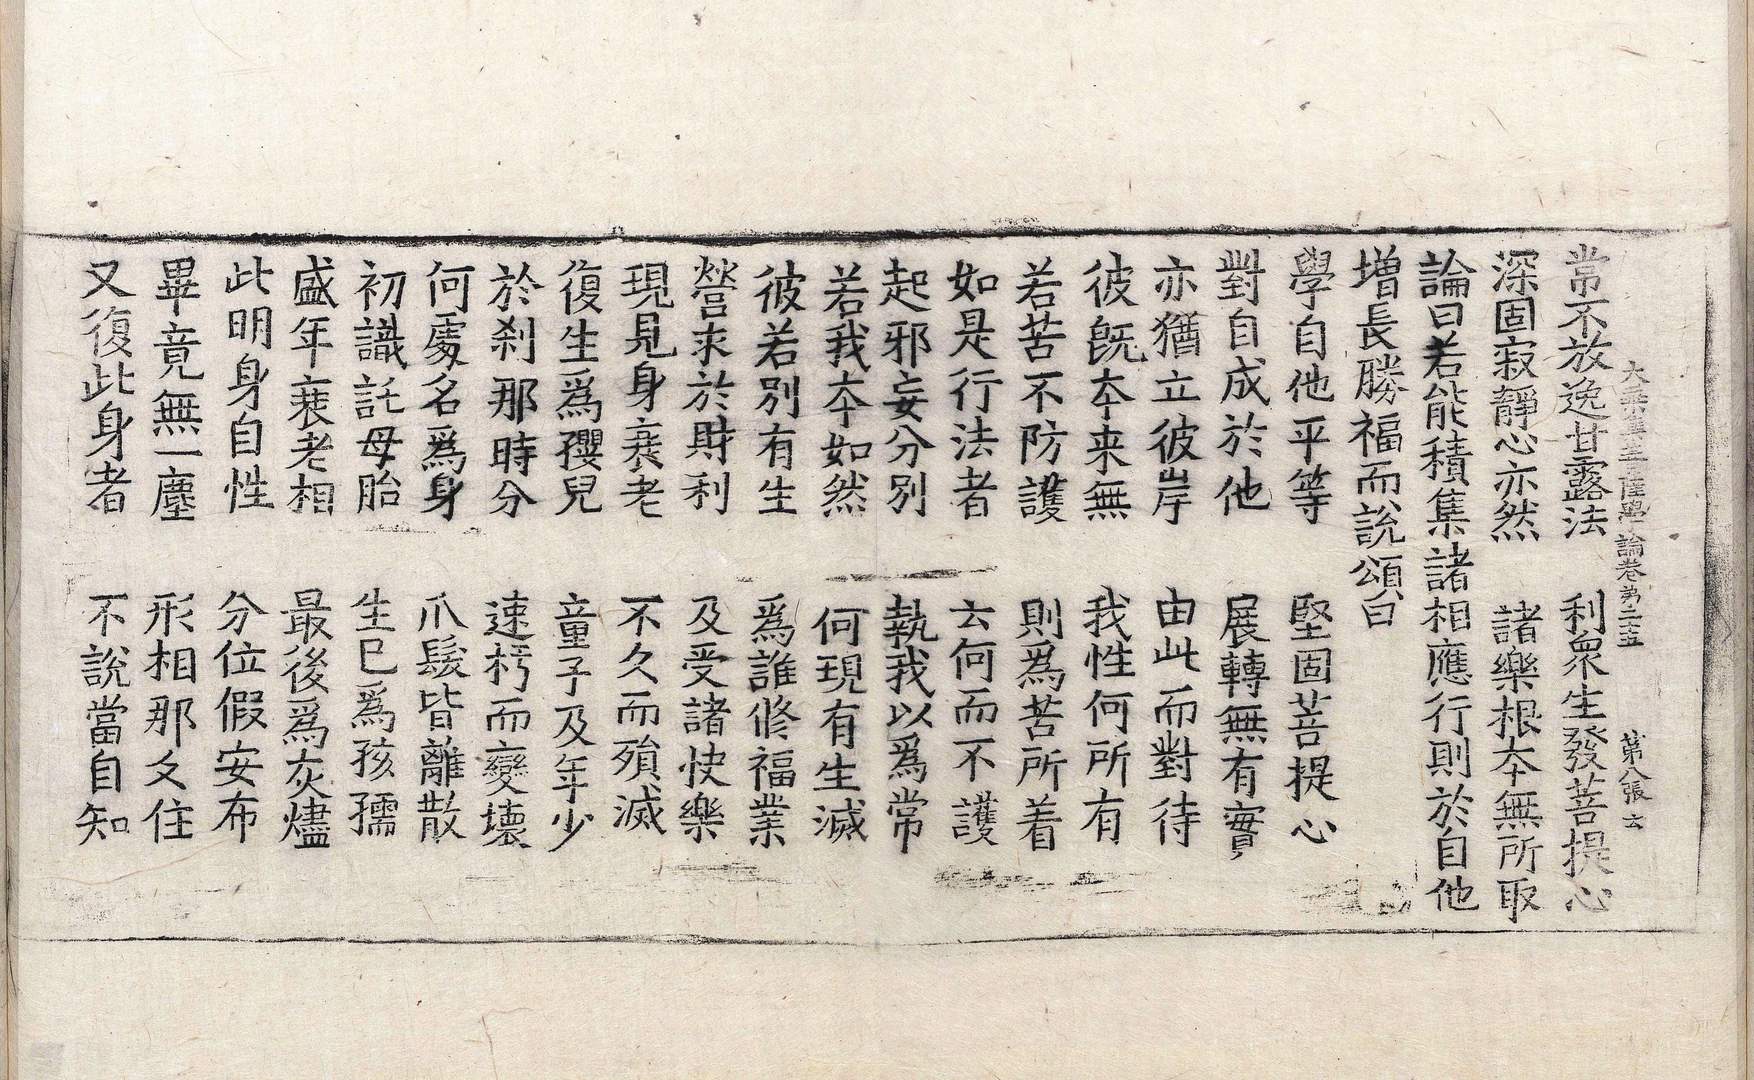 大乘集菩薩學論卷第二十五 第八張 云
常不放逸甘露法 利衆生發菩提心
深固寂靜心亦然 諸樂根本無所取
論曰若能積集諸相應行則於自他
增長勝福而說頌曰
學自他平等 堅固菩提心
對自成於他 展轉無有實
亦猶立彼岸 由此而對待
彼旣本来無 我性何所有
若苦不防護 則爲苦所着
如是行法者 云何而不護
起邪妄分別 執我以爲常
若我本如然 何現有生滅
彼若別有生 爲誰修福業
營求於財利 及受諸快樂
現見身衰老 不久而殞滅
復生爲孾兒 童子及年少
於刹那時分 速朽而變壞
何處名爲身 爪髮皆離散
初識託母胎 生已爲孩孺
盛年衰老相 最後爲灰燼
此明身自性 分位假安布
畢竟無一塵 形相那久住
又復此身者 不說當自知